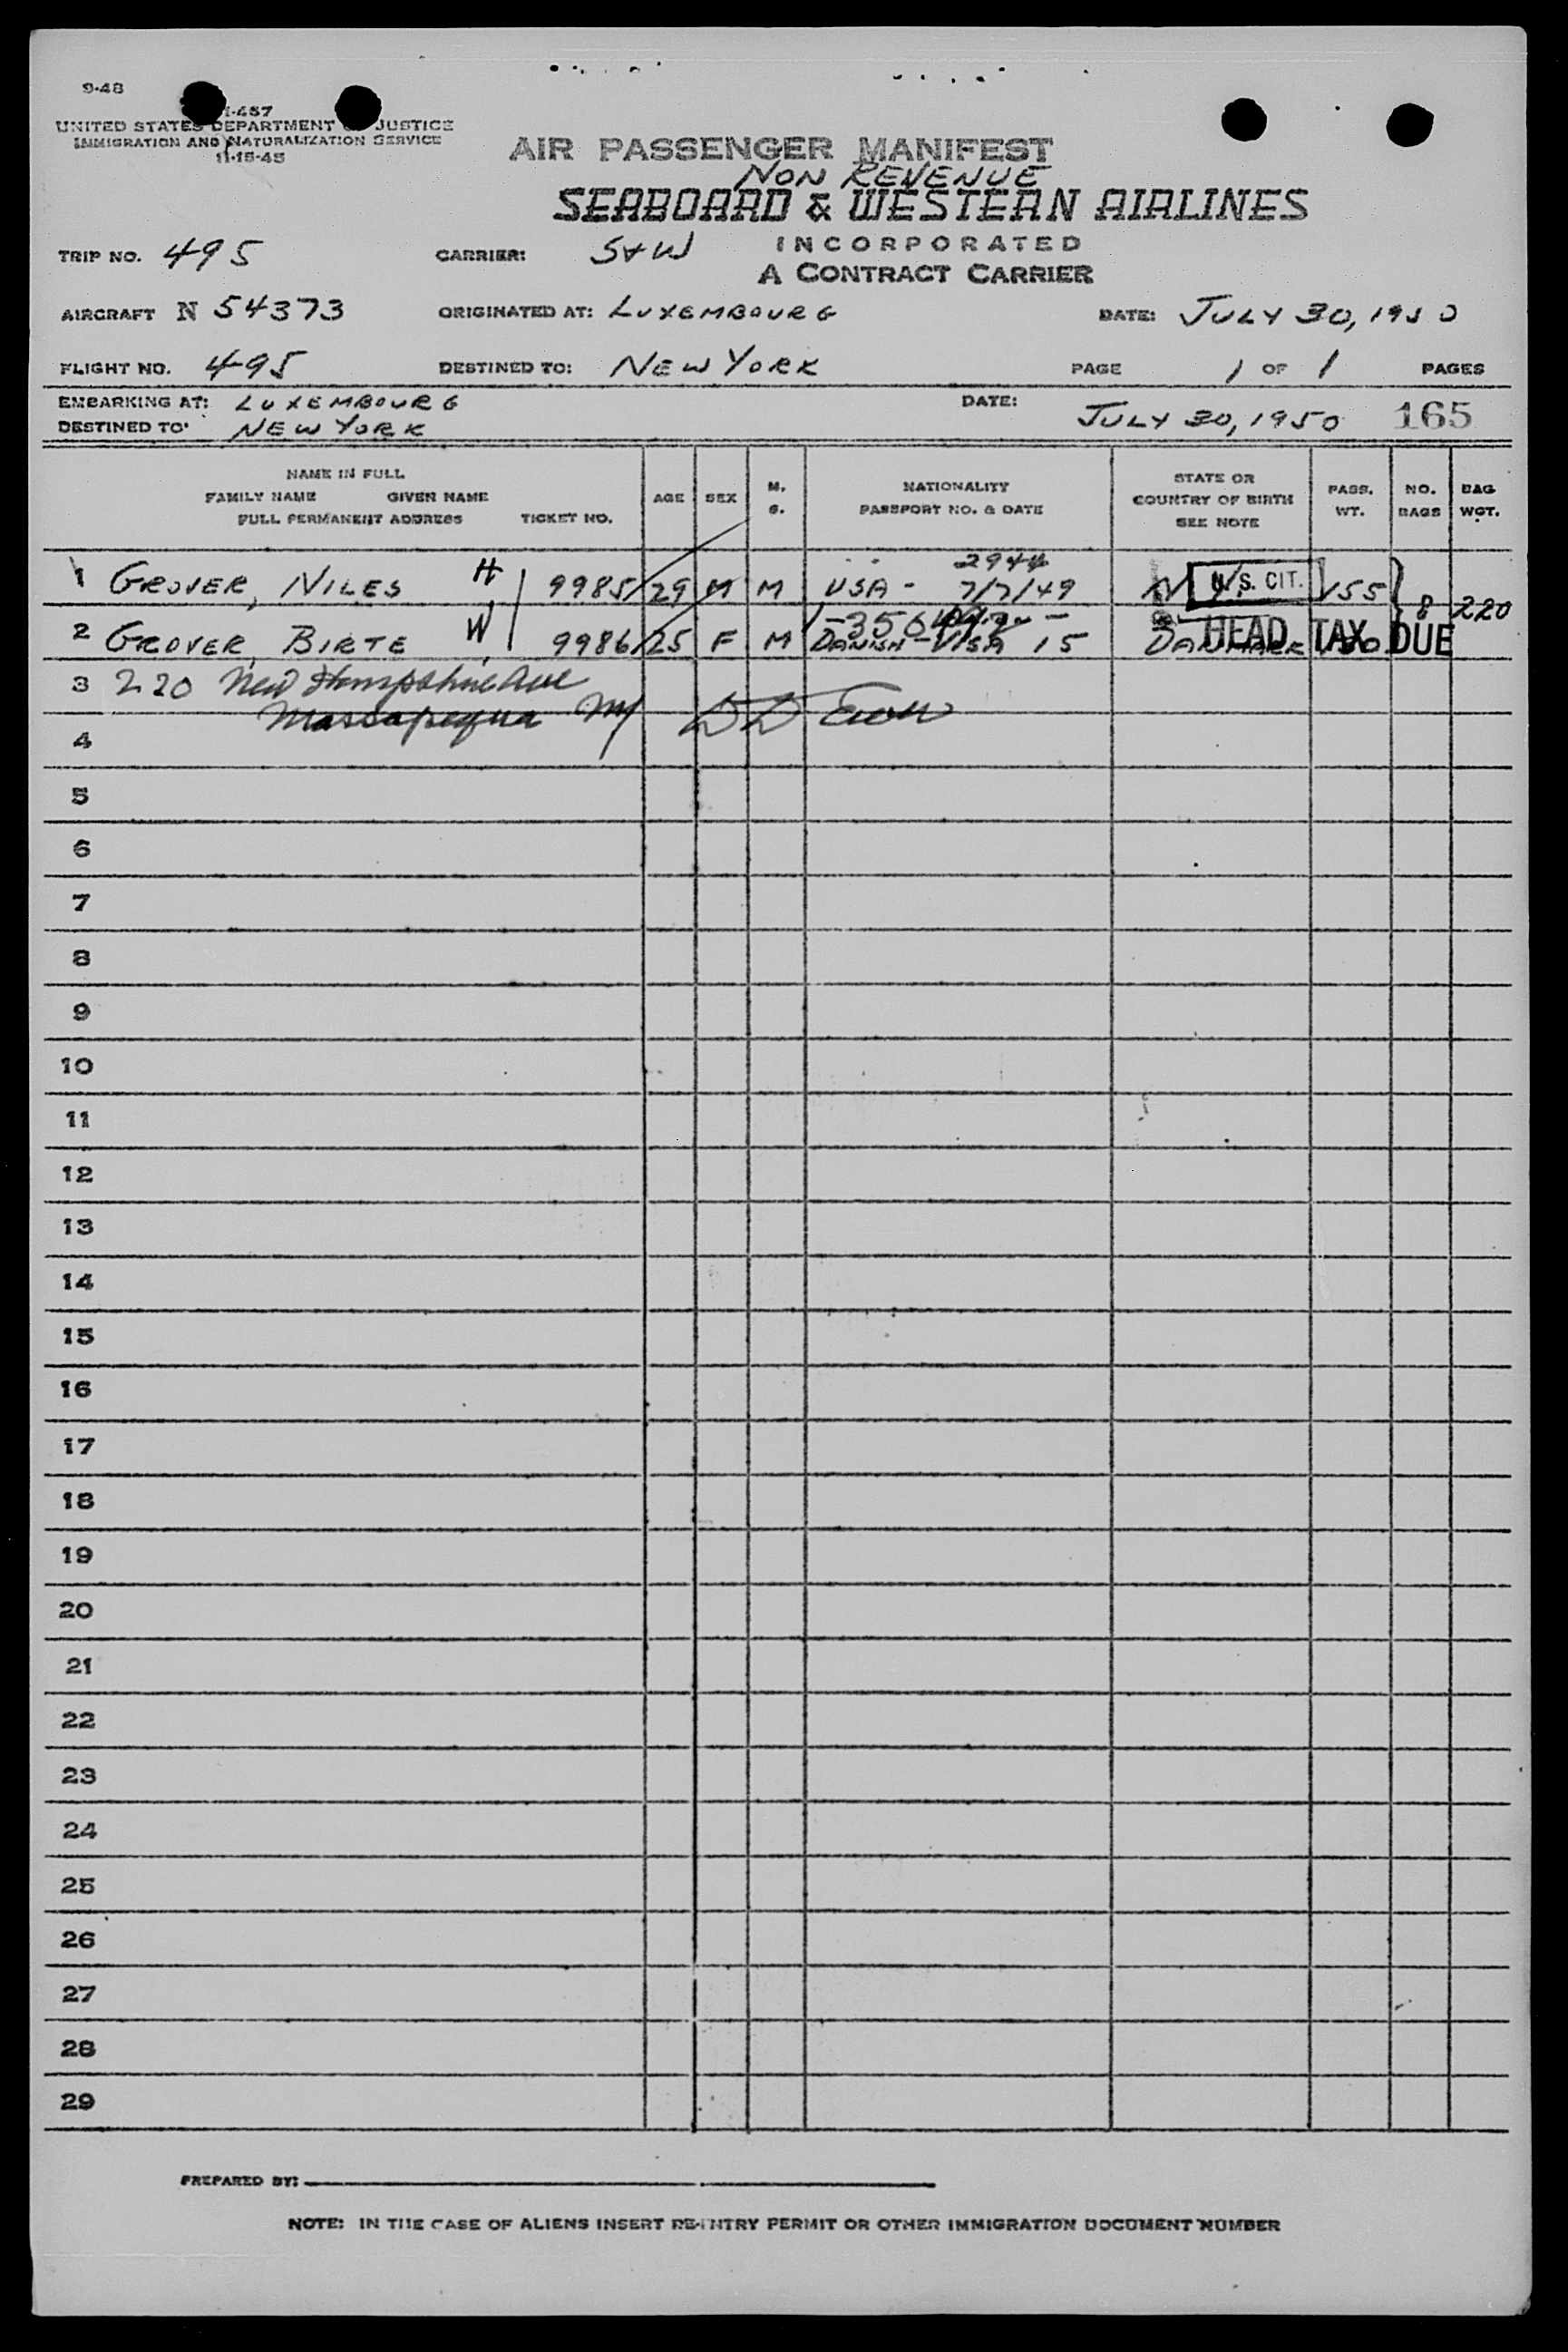 9-48
I-457
UNITED STATES DEPARTMENT OF JUSTICE
IMMIGRATION AND NATURALIZATION SERVICE
11-15-45
AIR PASSENGER MANIFEST
NON REVENUE
SEABOARD & WESTERN AIRLINES
INCORPORATED
A CONTRACT CARRIER
TRIP NO. 495 CARRIER: S+W
AIRCRAFT N 54373 ORIGINATED AT: LUXEMBOURG DATE: JULY 30, 1950
FLIGHT NO. 495 DESTINED TO: NEW YORK PAGE 1 OF 1 PAGES
EMBARKING AT: LUXEMBOURG DATE: JULY 30, 1950 165
DESTINED TO: NEW YORK
NAME IN FULL
FAMILY NAME GIVEN NAME
FULL PERMANENT ADDRESS TICKET NO. AGE SEX M. S. NATIONALITY PASSPORT NO. & DATE STATE OR COUNTRY OF BIRTH SEE NOTE PASS. WT. NO. BAGS BAG WGT.
2944
1 GROVER, NILES H 9985 29 M M USA - 7/7/49 N.Y. U.S. CIT. 155 8 220
2 GROVER, BIRTE W 9986 25 F M DANISH - VISA 15 DANMARK HEAD TAX DUE
3 220 New Hampshire Ave
Massapequa NY
4
5
6
7
8
9
10
11
12
13
14
15
16
17
18
19
20
21
22
23
24
25
26
27
28
29
PREPARED BY:
NOTE: IN THE CASE OF ALIENS INSERT RE-ENTRY PERMIT OR OTHER IMMIGRATION DOCUMENT NUMBER